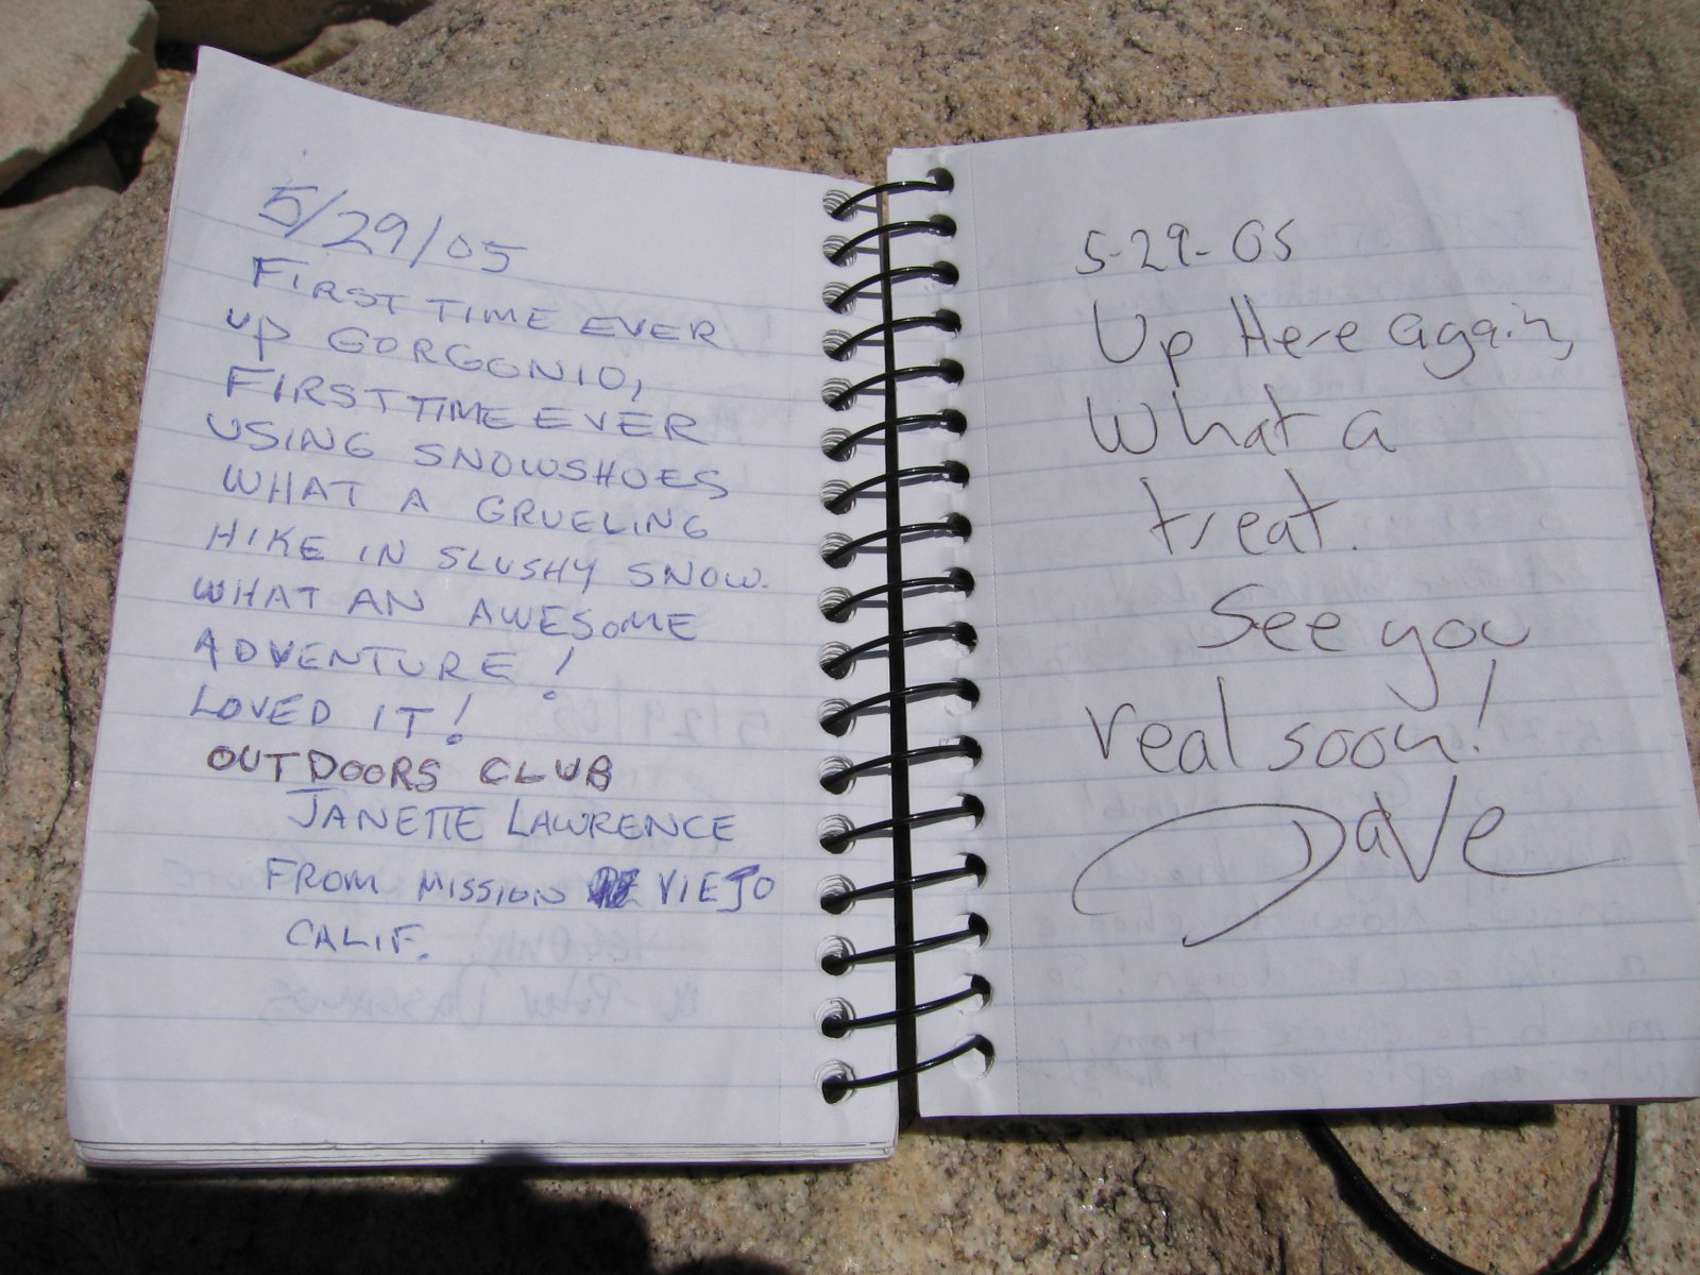 5/29/05
FIRST TIME EVER
UP GORGONIO,
FIRST TIME EVER
USING SNOWSHOES
WHAT A GRUELING
HIKE IN SLUSHY SNOW.
WHAT AN AWESOME
ADVENTURE!
LOVED IT!
OUTDOORS CLUB
JANETTE LAWRENCE
FROM MISSION VIEJO
CALIF.
5-29-05
Up Here again,
What a
treat.
See you
real soon!
Dave